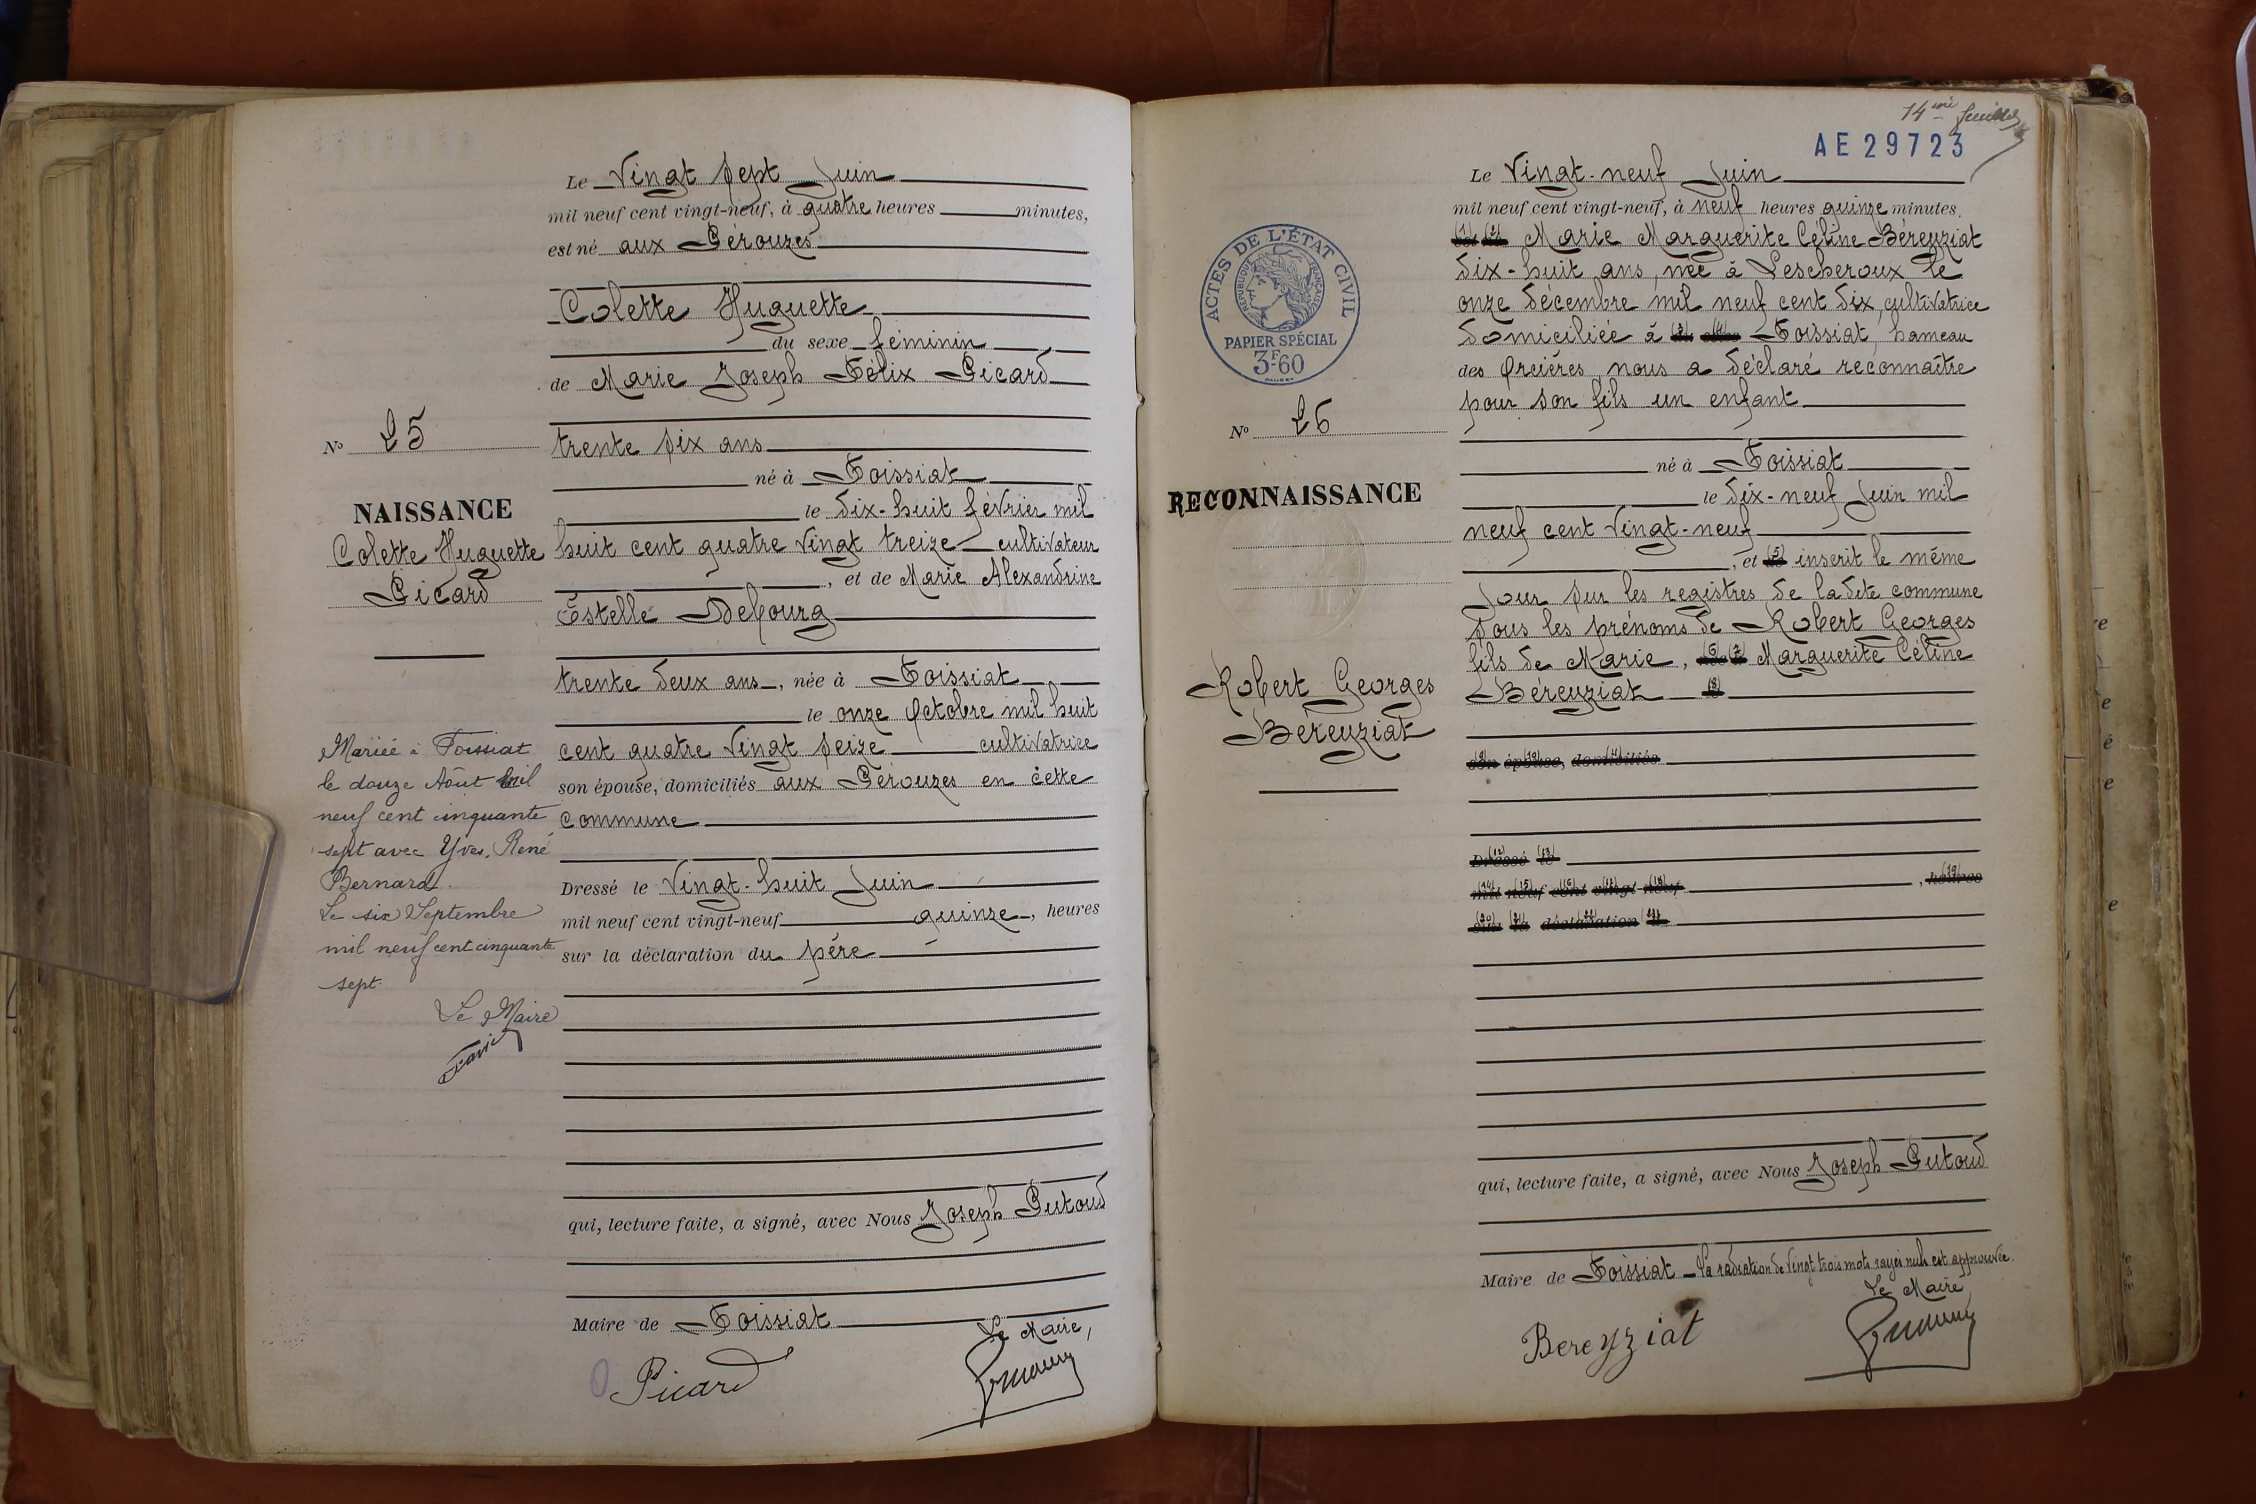 Le Vingt sept Juin
mil neuf cent vingt-neuf, à quatre heures minutes,
est né aux Pérouzes
Colette Huguette
du sexe féminin
de Marie Joseph Félix Picard
trente six ans
né à Foissiat
le dix-huit février mil
huit cent quatre vingt treize cultivateur
, et de Marie Alexandrine
Estelle Debourg
trente deux ans, née à Foissiat
le onze Octobre mil huit
cent quatre vingt seize cultivatrice
son épouse, domiciliés aux Pérouzes en cette
commune
Dressé le vingt-huit Juin
mil neuf cent vingt-neuf quinze, heures
sur la déclaration du père
qui, lecture faite, a signé, avec Nous Joseph Putoud
Maire de Foissiat
Le Maire,
Picard
No 25
NAISSANCE
Colette Huguette
Picard
Mariée à Foissiat
le douze Août mil
neuf cent cinquante
sept avec Yves, René
Bernard.
Le six Septembre
mil neuf cent cinquante
sept.
Le Maire
14me feuillet
AE 29723
Le Vingt-neuf Juin
mil neuf cent vingt-neuf, à neuf heures quinze minutes.
(1) (2) Marie Marguerite Céline Bereyziat
dix-huit ans, née à Lescheroux le
onze décembre mil neuf cent dix, cultivatrice
domiciliée à (3) (4) Foissiat, hameau
des Orcières nous a déclaré reconnaître
pour son fils un enfant
né à Foissiat
le dix-neuf Juin mil
neuf cent vingt-neuf
, et (5) inscrit le même
Jour sur les registres de ladite commune
sous les prénoms de Robert Georges
fils de Marie, (6) (7) Marguerite Céline
Béreyziat (8)
son épouse, domiciliés
Dressé le
mil neuf cent vingt-neuf, heures
sur la déclaration d
qui, lecture faite, a signé, avec Nous Joseph Putoud
Maire de Foissiat La radiation de vingt trois mots rayés nuls est approuvée.
Le Maire
Bereyziat
ACTES DE L'ÉTAT CIVIL
RÉPUBLIQUE FRANÇAISE
PAPIER SPÉCIAL
3F60
No 26
RECONNAISSANCE
Robert Georges
Béreyziat